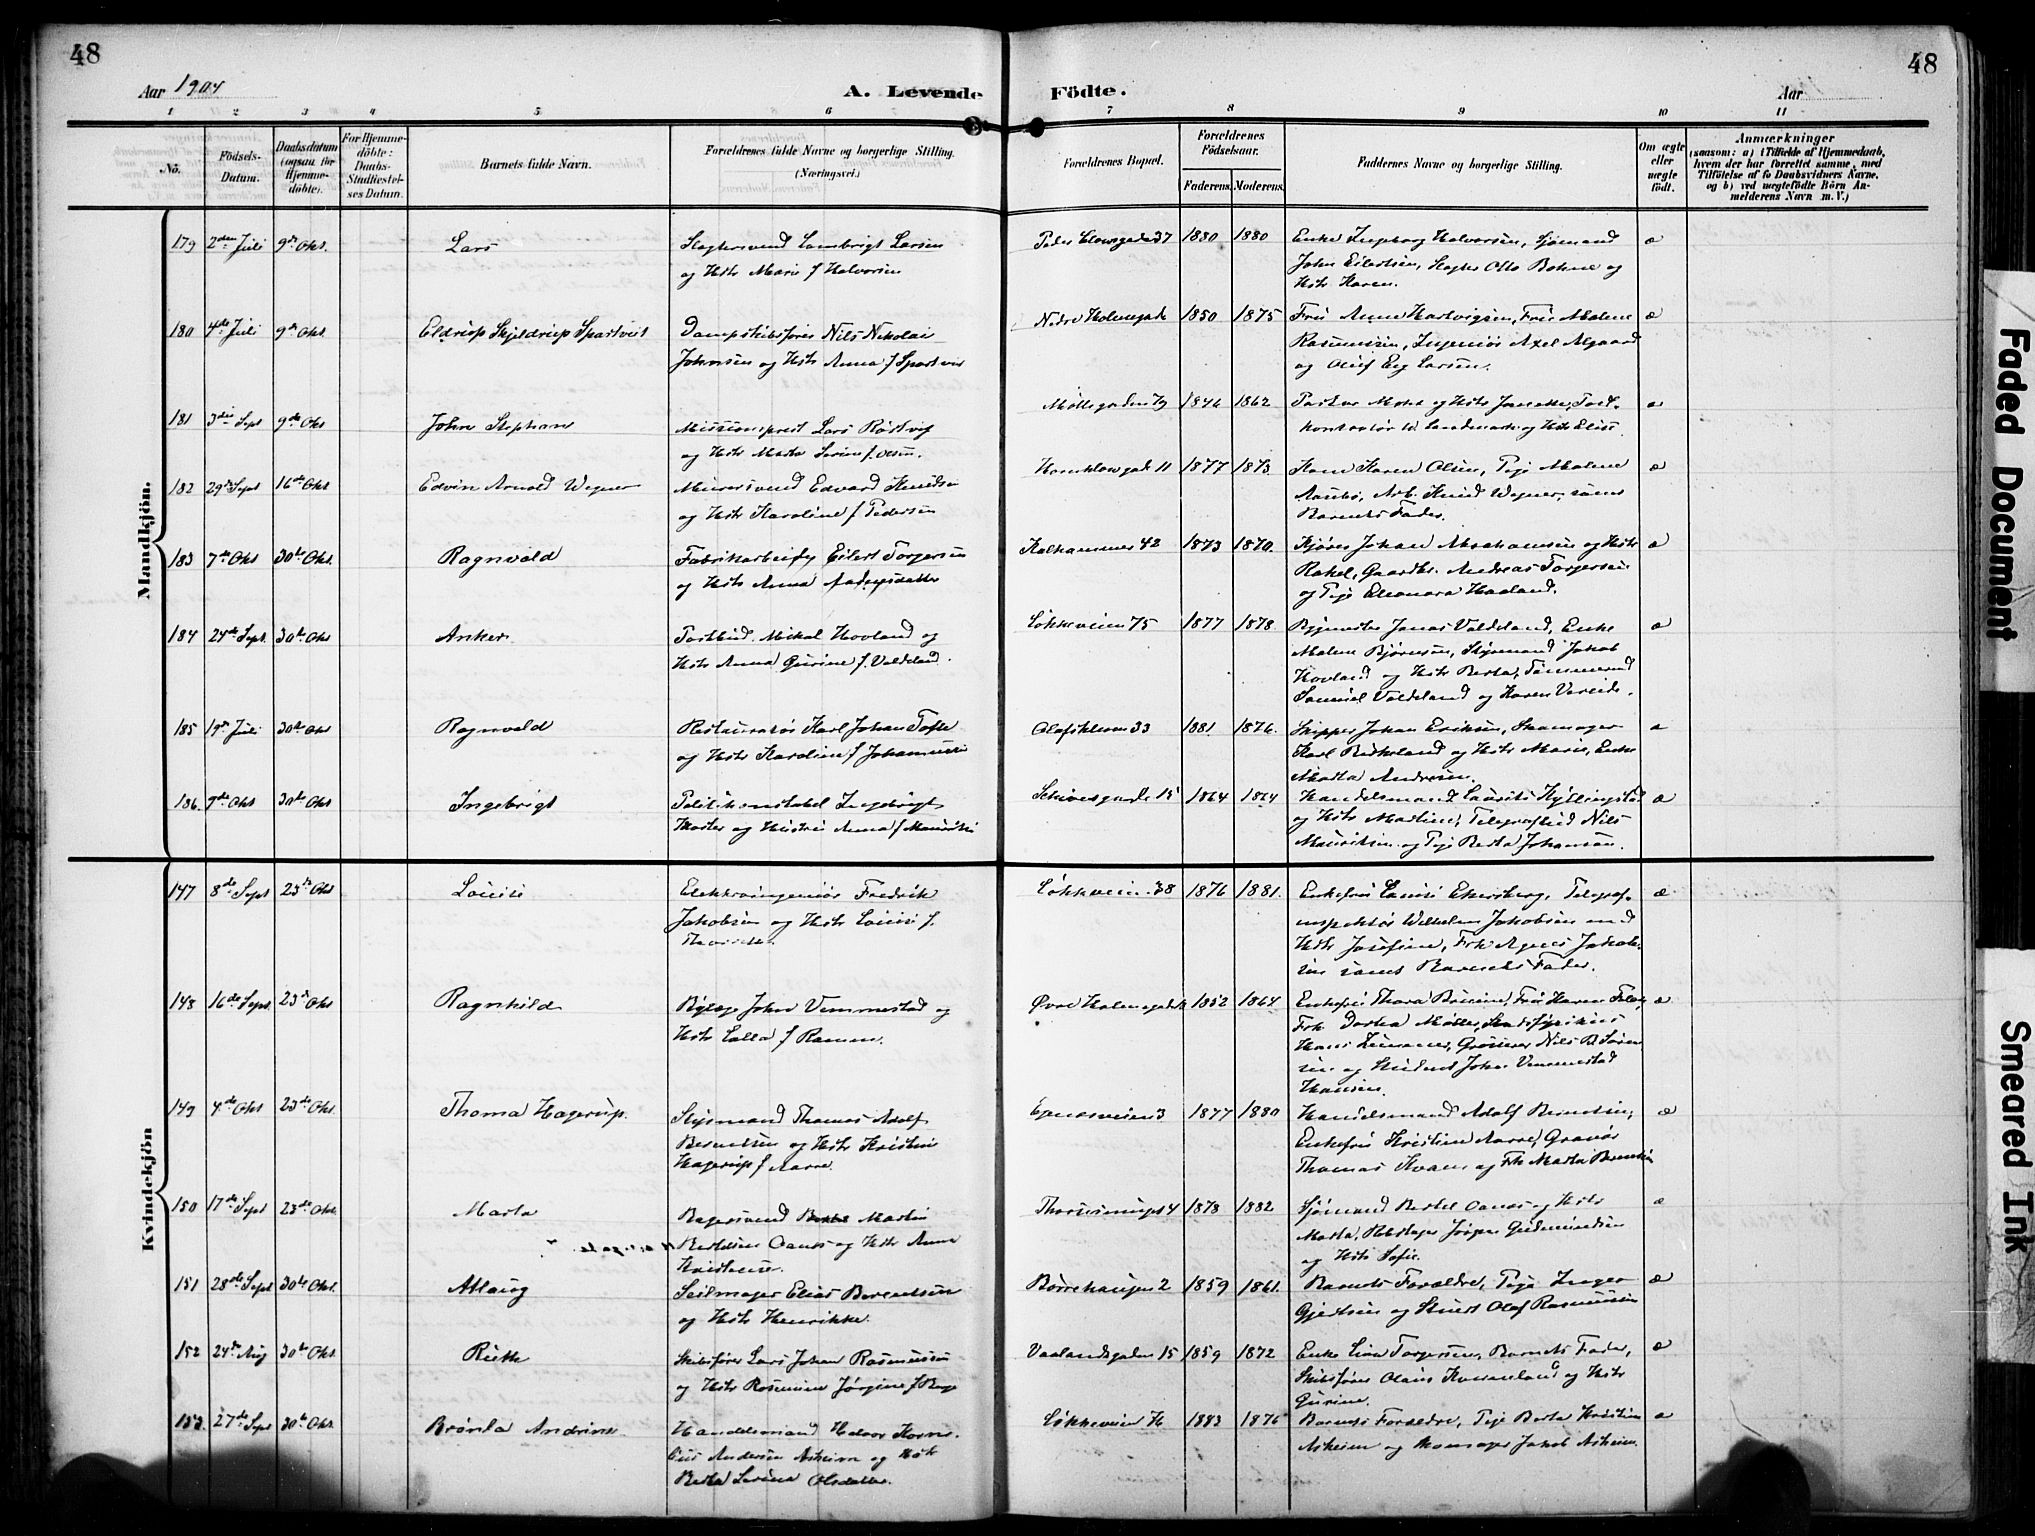 48
48
Aar 1904
A. Levende Födte.
Aar
1 2 3 4 5 6 7 8 9 10 11
No.
Födsels-Datum.
Daabsdatum (ogsaa for Hjemme-döbte).
For Hjemme-döbte: Daabs-Stadfæstel-ses Datum.
Barnets fulde Navn.
Forældrenes fulde Navne og borgerlige Stilling. (Næringsvei.)
Forældrenes Bopæl.
Forældrenes Födselsaar.
Faderens. Moderens.
Faddernes Navne og borgerlige Stilling.
Om ægte eller uægte födt.
Anmærkninger
(saasom: a) i Tilfælde af Hjemmedaab,
hvem der har forrettet samme, med
Tilföielse af to Daabsvidners Navne,
og b) ved uægtefödte Börn An-
melderens Navn m. V.)
Mandkjön.
179 2den Juli 9de Okt. Lars
Slagtersvend Lambrigt Larsen
og Hstr Marie f Halvorsen
1880 1880
Enke Ingeborg Halvorsen, Sjømand
John Eilertsen, Slagter Otto Bohne og
Hstr. Karen.
æ
180 4de Juli 9de Okt. Eldrup Skjeldrup Spartveit
Dampskibsfører Nils Nikolai
Johnsen og Hstr Anna f Spartveit
Nedre Holmegade 1850 1875
Frü Anna Hartvigsen, Frü Malene
Rasmussen, Ingeniør Axel Algaard
og Oluf Eeg Larsen.
æ
181 3die Sept 9de Okt John Stephan
Missionsprest Lars Røstvig
og Hstr Marta Serine f. Olsen.
Møllegaden 79 1846 1862
kontorør W. Landmark og Hstr Elise.
æ
182 29de Sept 16de Okt Edvin Arnold Wegner
Murersvend Edvard Knudsen
og Hstr Karoline f Pedersen
Harekløvgade 11 1877 1873
Kone Karen Olsen, Pige Malene
Aasebø, Arb. Knud Wegner, samt
Barnets Fader.
æ
183 7de Okt 30te Okt. Ragnvald
Fabrikarbeider Eilert Torgersen
og Hstr Anna
Kalhammer 42 1873 1870.
Kjører Johan Abrahamsen og Hstr
Rakel, Gaardbr. Andreas Torgersen
og Pige Eleonora Haaland.
æ
184 24de Sept. 30te Okt Anker
Postbud Mikal Hovland og
Hstr Anna Gurine f. Valdeland.
Løkkeveien 75 1877 1878
Jonas Valdeland, Enke
Malene Bjørnsen, Styrmand Jakob
Hovland og Hstr Berta, Tømmermd
Samuel Valdeland og Karen Vereide.
æ
185 19de Juli 30te Okt Ragnvald
Restauratør Karl Johan Tofte
og Hstr Karoline f Johannessen
Olafskleven 33 1881 1876.
Skipper Johan Eriksen, Skomager
Karl Birkeland og Hstr Marie, Enke
Marta Andresen.
æ
186. 9de Okt 30te Okt Ingebrigt
Politikonstabel Ingebrigt
og Hustru Anna f Mauritsen
15 1864 1864
Handelsmand Laurits Kyllingstad
og Hstr Martine, Telegrafbud Nils
Mauritsen og Pige Berta Johansen.
æ
Kvindekjön
147 8de Sept 23de Okt Louise
Elektroingeniør Fredrik
Jakobsen og Hstr Louise f.
Løkkeveien 38 1876 1881.
Enkefrü Louise Ekersberg, Telegraf-
inspektør Wilhelm Jakobsen med
Hstr Josefine, Frk Agnes Jakob-
sen samt Barnets Fader.
æ
148 16de Sept. 23de Okt Ragnhild
Bylæge John Vemmestad og
Hstr Lalla f Ramm.
Øvre Holmegade 1852 1864
Frk Dortea Møller, Stadsfysikus
Hans Grosserer Nils B Søren-
sen og Student John Vemmestad
Hansen.
æ
149 4de Okt 23de Okt. Thoma Hagerup.
Styrmand Thomas Adolf
Berentsen og Hstr Kristine
Hagerup f Aarre.
Egenesveien 3 1877 1880
Handelsmand Adolf Berentsen,
Enkefrü Kristine Aarre, Gravør
Thomas Kvam og Frk Marta Berentsen
æ
150 17de Sept 23de Okt. Marta
Bagersvend Martin
Bertelsen Oanes og Hstr Anna
4 1878 1882
Sjømand Bertel Oanes og Hstr
Marta, Jørgen Gudmundsen
og Hstr Sofie.
æ
151 28de Sept 30te Okt. Aslaug
Seilmager Elias Berentsen
og Hstr Henrikke.
Børrehaugen 2 1859 1861.
Barnets Forældre, Pige Inger
Gjertsen og Student Olaf Rasmussen
æ
152 24de Aug 30te Okt. Ruth
Skibsfører Lars Johan Rasmussen
og Hstr Rasmine Jørgine f Bøe
Vaalandsgaden 15 1859 1872
Enke Lina Torgersen, Barnets Fader,
Skibsfører Olaus Kommeland og Hstr
Gurine.
æ
153. 27de Sept 30te Okt. Brønla Andrine
Handelsmand Halvor
Andersen Askeim og Hstr
Berta Serina Olsdatter
Løkkeveien 1883 1876
Barnets Forældre, Pige Berta Kristine
Askeim og Skomager Jakob Askeim.
æ
Faded Document
Smeared Ink